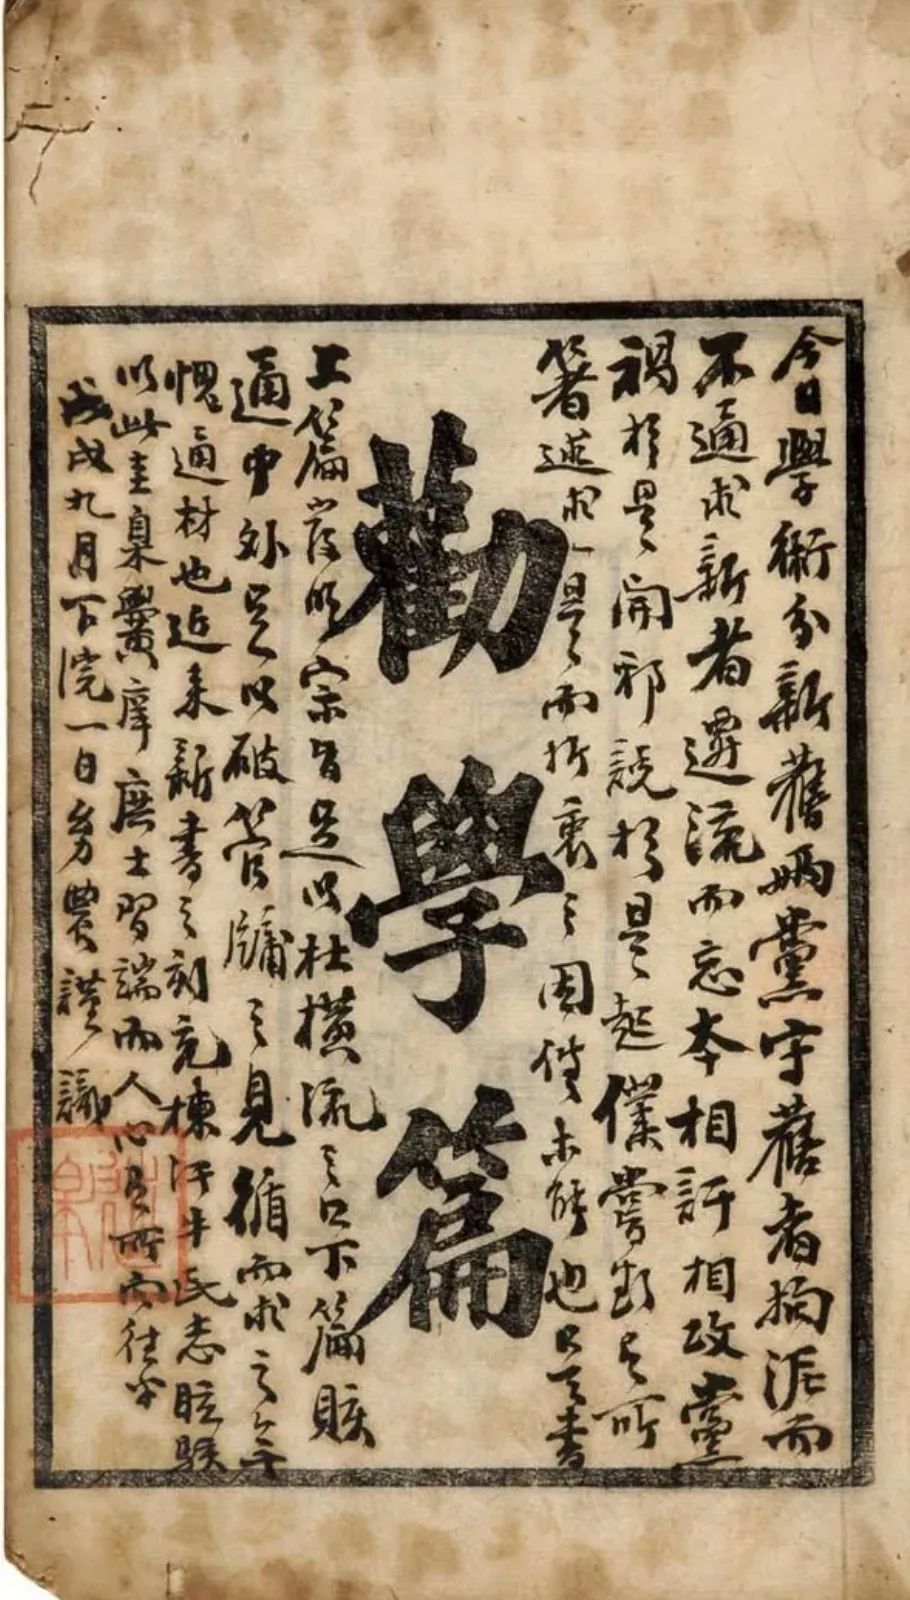 今日學術分新舊兩黨守舊者拘泥而
不通求新者遷流而忘本相訐相攻黨
禍於是開邪說於是起僕嘗欲有所
著述求一是而折衷之因循未能也是書
勸學篇
上篇發明宗旨足以杜橫流之口下篇賅
通中外足以破管牖之見循而求之無
愧通材也近來新書之刻充棟汗牛民志眩駭
以此圭臬黌庠庶士習端而人心有所向往乎
戊戌九月下浣一日勞農謹識